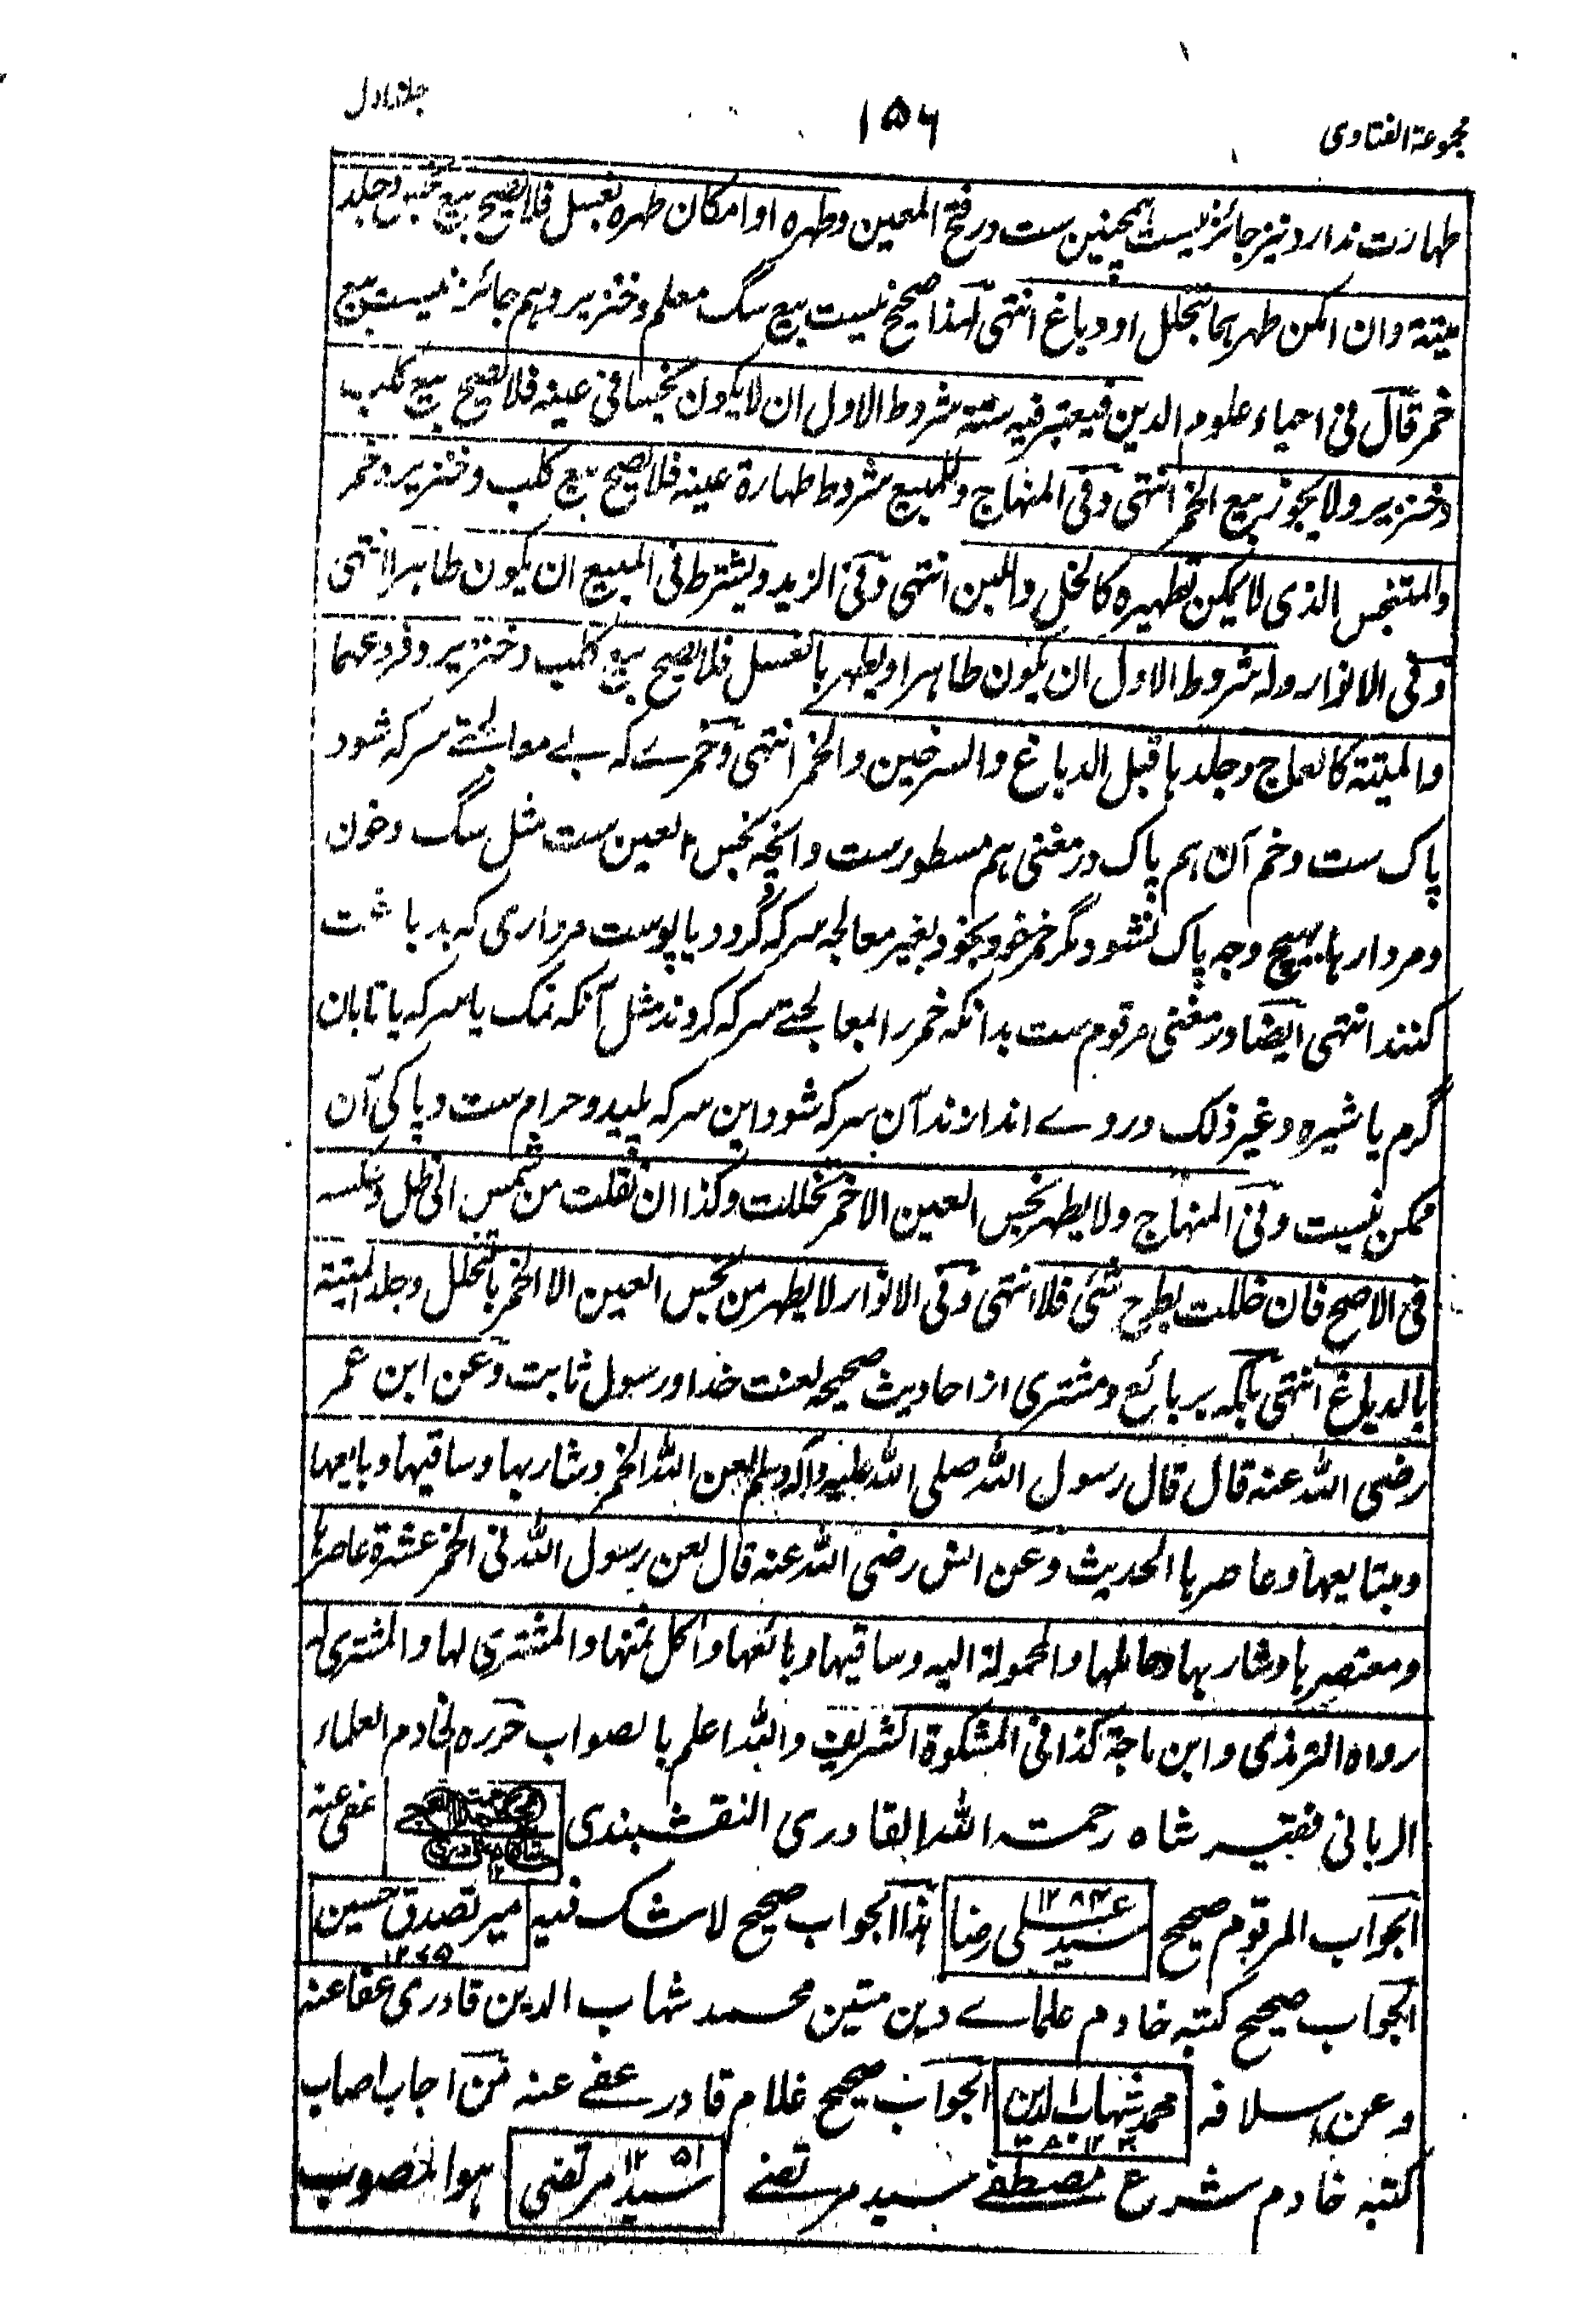 مجموعة الفتاوى ۱۵۶ جلد اول
طهارت ندارد نیز جائز نیست همچنین ست در فتح المعین وطهره او امکان طهره بغسل فلا یصح بیع نجس وجلد
میتة وان امکن طهرهما بتخلل او دباغ انتهی لهذا صحیح نیست بیع سگ معلم وخنزیر وهم جائز نیست بیع
خمر قال فی احیاء علوم الدین فیعتبر فیه ستة شروط الاول ان لا یکون نجسا فی عینه فلا یصح بیع کلب
وخنزیر ولا یجوز بیع الخمر انتهی وفی المنهاج وللمبیع شروط طهارة عینه فلا یصح بیع کلب وخنزیر وخمر
والمتنجس الذی لا یمکن تطهیره کالخل واللبن انتهی وفی الزبد ویشترط فی المبیع ان یکون طاهرا انتهی
وفی الانوار وله شروط الاول ان یکون طاهرا او یطهر بالغسل فلا یصح بیع کلب وخنزیر وفروعهما
والمیتة کالعاج وجلدها قبل الدباغ والسرجین والخمر انتهی وخمرے که بے معالجتے سرکه شود
پاک ست وخم آن هم پاک در مغنی هم مسطورست وانچه نجس العین ست مثل سگ وخون
ومردارها بهیچ وجه پاک نشود مگر خمر خود بخود بغیر معالجه سرکه گردد یا پوست مرداری که بدباغت
کنند انتهی ایضا در مغنی مرقوم ست بدانکه خمر را بمعالجتے سرکه کردند مثل آنکه نمک یا سرکه یا تابان
گرم یا شیره وغیر ذلک در وے اندازند آن سرکه شود این سرکه پلید وحرام ست وپاکی آن
ممکن نیست وفی المنهاج ولا یطهر نجس العین الا خمر تخللت وکذا ان نقلت من شمس الی ظل وعکسه
فی الاصح فان خللت بطرح شئ فلا انتهی وفی الانوار لا یطهر من نجس العین الا الخمر بالتخلل وجلد المیتة
بالدباغ انتهی بلکه بر بائع ومشتری از احادیث صحیحه لعنت خدا ورسول ثابت وعن ابن عمر
رضی الله عنه قال قال رسول الله صلی الله علیه وآله وسلم لعن الله الخمر وشاربها وساقیها وبایعها
ومبتایعها وعاصرها الحدیث وعن انس رضی الله عنه قال لعن رسول الله فی الخمر عشرة عاصرها
ومعتصرها وشاربها وحاملها والمحمولة الیه وساقیها وبائعها واکل ثمنها والمشتری لها والمشتری له
رواه الترمذی وابن ماجة کذا فی المشکوة الشریف والله اعلم بالصواب حرره خادم العلماء
الربانی فقیر شاه رحمت الله القادری النقشبندی عفی عنه
الجواب المرقوم صحیح سید علی رضا ۱۲۸۴ هذا الجواب صحیح لا شک فیه میر تصدق حسین ۱۲۷۵
الجواب صحیح کتبه خادم علمائے دین متین محمد شهاب الدین قادری عفا عنه
وعن اسلافه محمد شهاب الدین الجواب صحیح غلام قادر عفی عنه من اجاب اصاب
کتبه خادم شرع مصطفے سید مرتضے سید مرتضی ۱۲۵۱ هو المصوب